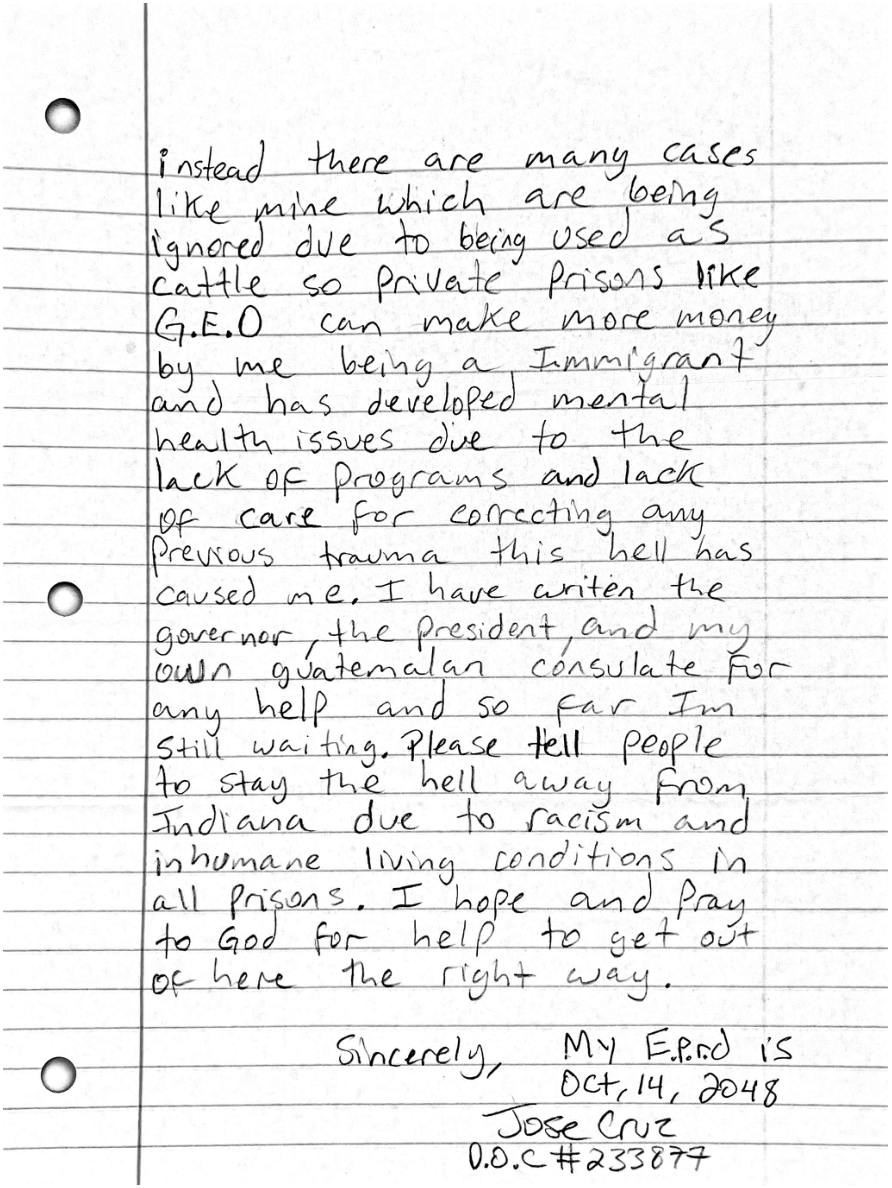 instead there are many cases
like mine which are being
ignored due to being used as
cattle so private prisons like
G.E.O can make more money
by me being a Immigrant
and has developed mental
health issues due to the
lack of programs and lack
of care for correcting any
previous trauma this hell has
caused me. I have writen the
governor, the president, and my
own guatemalan consulate for
any help and so far Im
still waiting. Please tell people
to stay the hell away from
Indiana due to racism and
inhumane living conditions in
all prisons. I hope and pray
to God for help to get out
of here the right way.
Sincerely, My E.P.r.d is
Oct, 14, 2048
Jose Cruz
D.O.C #233877